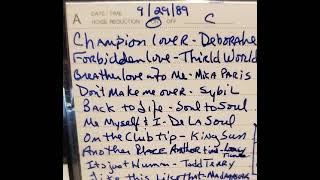 9/29/89
A DATE/TIME C
NOISE REDUCTION ON OFF
Champion Lover - Deborahe
Forbidden Love - Third World
Breathe love into Me - Mica Paris
Don't Make me over - Sybil
Back to Life - Soul to Soul
Me Myself & I - De La Soul
On the Club tip - King Sun
Another Place Another time -
Its just Human - Todd Terry
like this Like that -